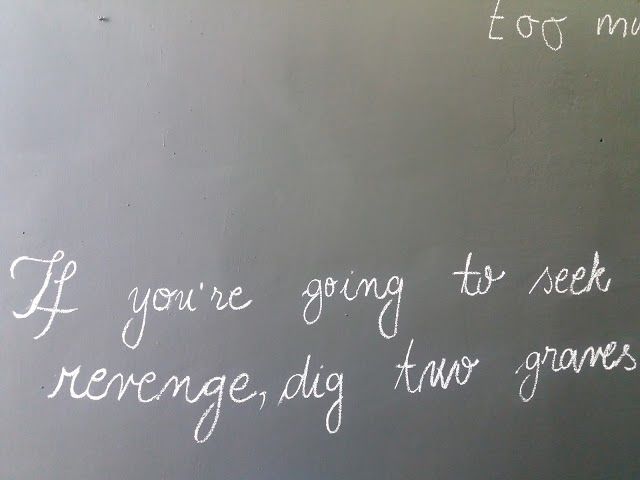 too
If you're going to seek
revenge, dig two graves